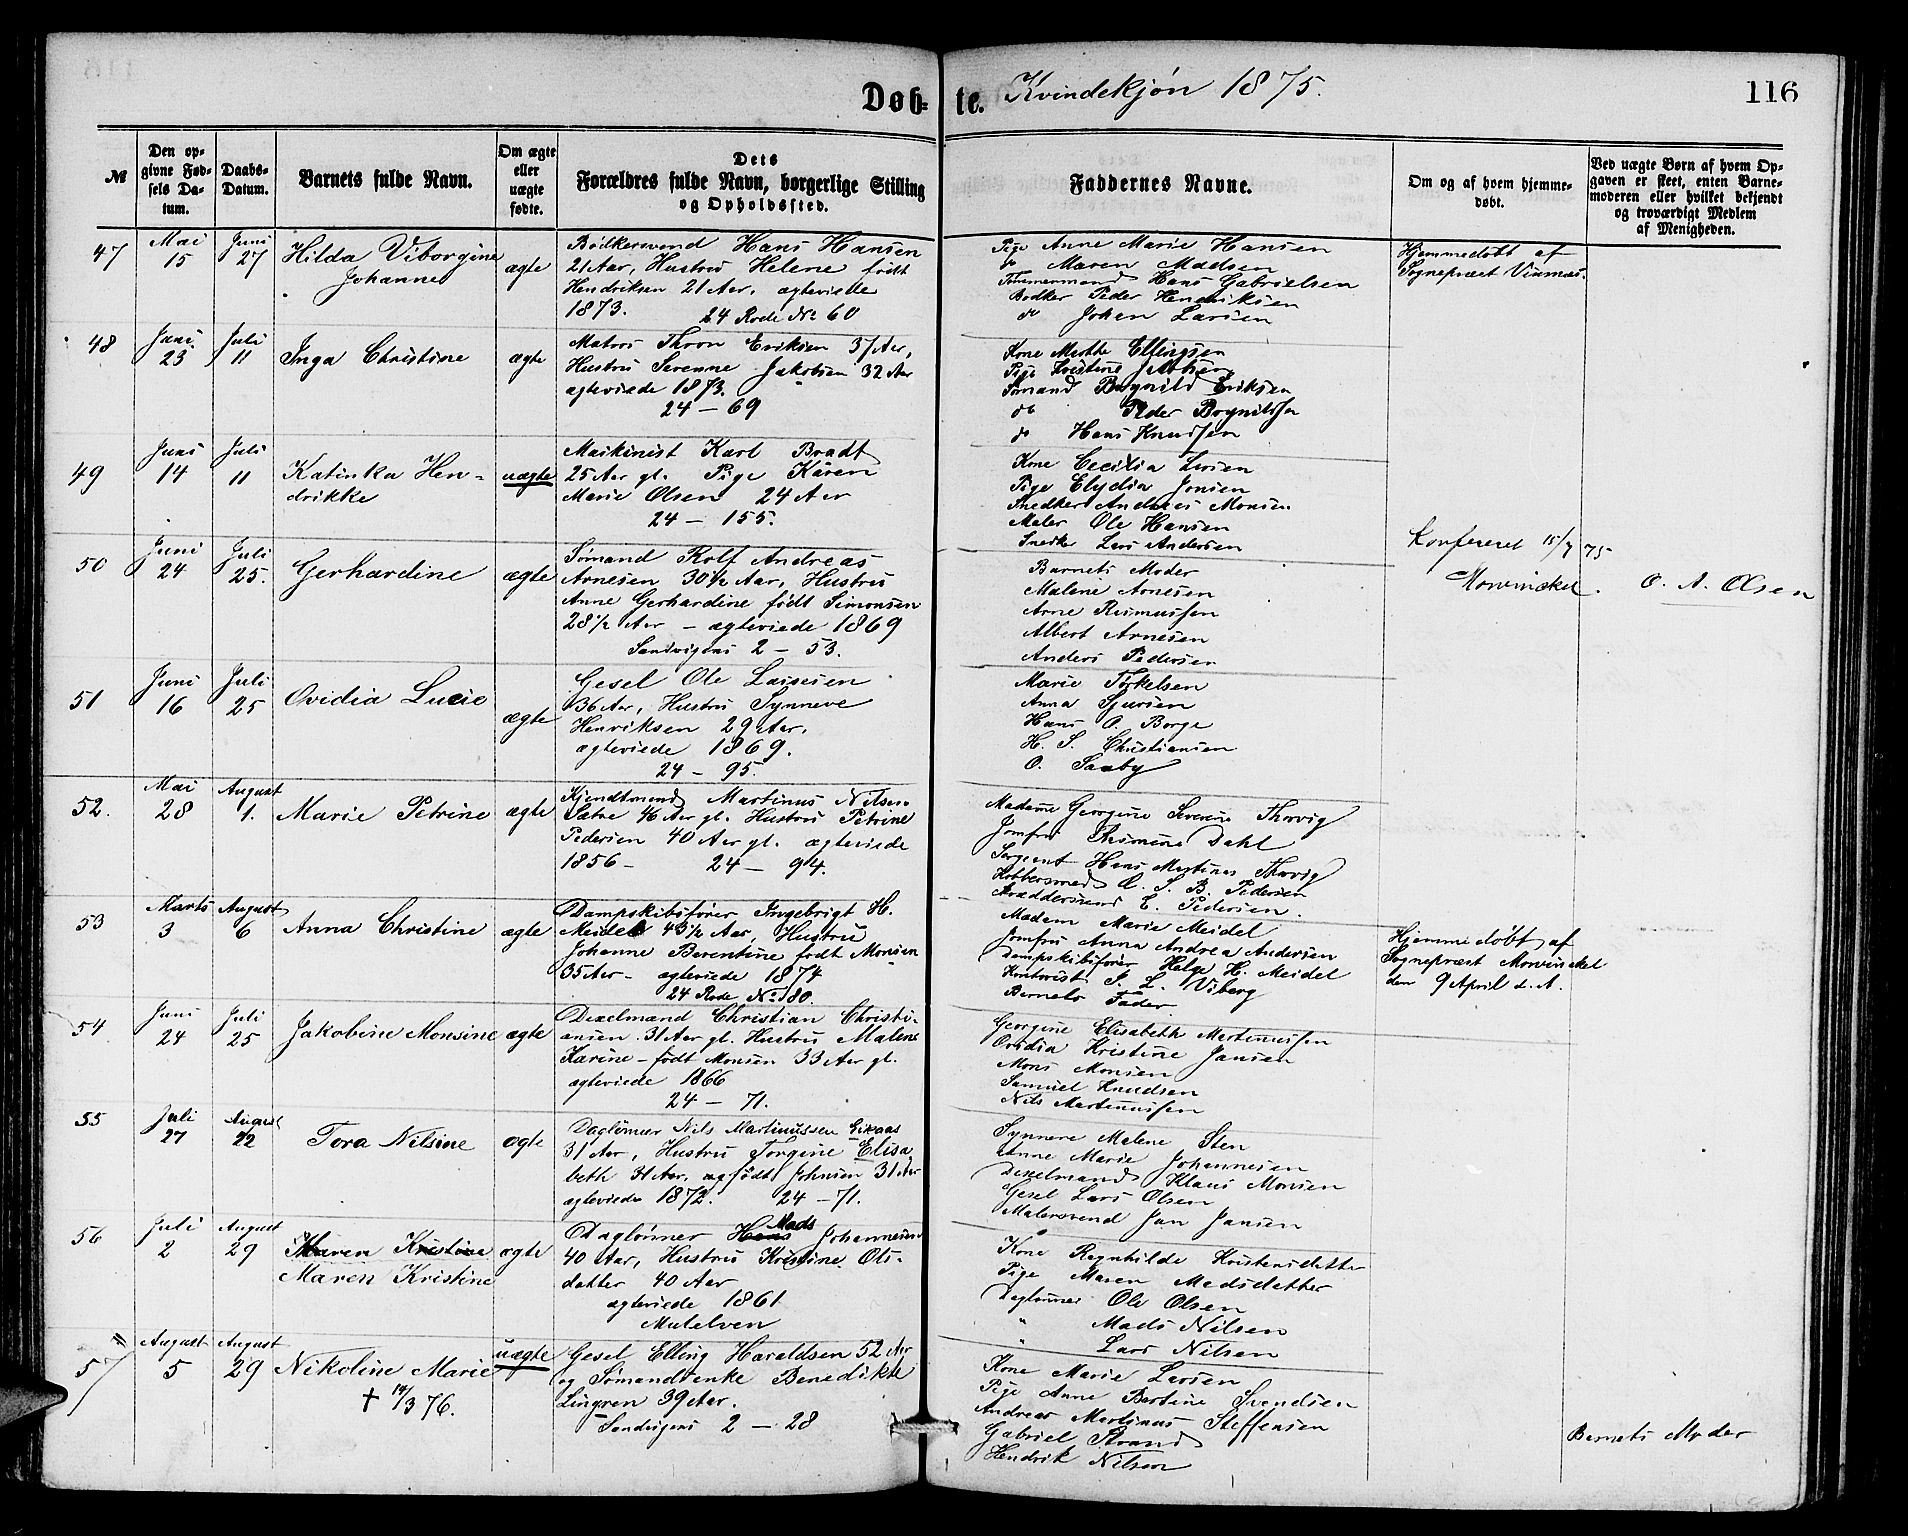 Døb- te. Kvindekjøn 1875. 116
№
Den opgivne Fødsels Datum.
Daabs-Datum.
Barnets fulde Navn.
Om ægte eller uægte fødte.
Dets Forældres fulde Navn, borgerlige Stilling og Opholdssted.
Faddernes Navne.
Om og af hvem hjemmedøbt.
Ved uægte Børn af hvem Opgaven er skeet, enten Barnemoderen eller hvilket bekjendt og troværdigt Medlem af Menigheden.
47 Mai 15 Juni 27 Hilda Viborgine Johanne ægte
Bødkersvend Hans Hansen
21 Aar, Hustru Helene født
Hendriksen 21 Aar, ægteviede
1873. 24 Rode No 60
Pige Anne Marie Hansen
do Maren Madsen
Tømmermand Hans Gabrielsen
Bødker Peder Hendriksen
do Johan Larsen
Hjemmedøbt af
Sognepræst
48 Juni 23 Juli 11 Inga Christine ægte
Matros Thron Eriksen 37 Aar,
Hustru Serenne Jakobsen 32 Aar
ægteviede 1873.
24 - 69
Kone Marthe Ellingsen
Pige Kristine
Sømand Bognild Eriksen
do Peder Bognildsen
do Hans Knudsen
49 Juni 14 Juli 11 Katinka Hendrikke uægte
Maskinist Karl Bradt
25 Aar gl. Pige Karen
Marie Olsen 24 Aar
24 - 155.
Kone Cecilia Larsen
Pige Elydia Jonsen
Snedker Andreas Monsen
Maler Ole Hansen
Snedker Lars Andersen
Konfereret 15/7 75
Morvinckel. O. A. Olsen
50 Juni 24 Juli 25. Gerhardine ægte
Sømand Rolf Andreas
Arnesen 30 1/2 Aar, Hustru
Anne Gerhardine født Simonsen
28 1/2 Aar - ægteviede 1869
Sandvigens 2 - 53.
Barnets Moder
Malene Arnesen
Arne Rasmussen
Albert Arnesen
Anders Pedersen
51 Juni 16 Juli 25 Ovidia Lucie ægte
Gesel Ole Larsen
36 Aar, Hustru Synneve
Henriksen 29 Aar,
ægteviede 1869.
24 - 95.
Marie Torkelsen
Anna Sjursen
Hans O. Borge
H. S. Christiansen
O. Saaby
52. Mai 28 August 1. Marie Petrine ægte
Kjendtmand Martinus Nilsen
Sætre 46 Aar gl. Hustru Petrine
Pedersen 40 Aar gl. ægteviede
1856 - 24 - 94.
Madame Georgine Severine Thorvig
Jomfru Rasmine Dahl
Sergeant Hans Martinus Thorvig
Kobbersmed C. S. B. Pedersen
Skræddersvend E. Pedersen.
53 Marts 3 August 6 Anna Christine ægte
Dampskibsfører Ingebrigt H.
Meidel 43 1/2 Aar, Hustru
Johanne Berentine født Monsen
35 Aar - ægteviede 1874
24 Rode No 180.
Madam Marie Meidel
Jomfru Anna Andrea Andersen
Dampskibsfører Helge H. Meidel
Kontorist J. L. Viberg
Barnets Fader
Hjemmedøbt af
Sognepræst Morvinckel
den 9 April d. A.
54 Juni 24 Juli 25 Jakobine Monsine ægte
Dixelmand Christian Christiansen
31 Aar gl. Hustru Malene
Karine - født Monsen 33 Aar gl.
ægteviede 1866
24 - 71.
Georgine Elisabeth Martinussen
Ovidia Kristine Jansen
Mons Monsen
Samuel Knudsen
Nils Martinussen
55 Juli 27 August 22 Tora Nilsine ægte
Daglønner Nils Martinussen
31 Aar, Hustru Torgine Elisabeth
31 Aar, født Johnsen 31 Aar
ægteviede 1872. 24 - 71.
Synneve Malene Sten
Anne Marie Johannesen
Dixelmand Klaus Monsen
Gesel Lars Olsen
Malersvend Jan Jansen
56 Juli 2 August 29 Maren Kristine ægte
Maren Kristine
Daglønner Hans Mads Johannesen
40 Aar, Hustru Kristine Olsdatter
40 Aar
ægteviede 1861
Mulelven
Kone Ragnhilde Kristensdatter
Pige Maren Madsdatter
Daglønner Ole Olsen
" Mads Nilsen
" Lars Nilsen
57 August 5 August 29 Nikoline Marie uægte
† 14/3 76.
Gesel Elling Haraldsen 52 Aar
og Sømandsenke Benedikte
Lingren 39 Aar.
Sandvigens 2 - 28
Kone Marie Larsen
Pige Anne Bertine Svendsen
Andreas Martinus Steffensen
Gabriel Strand
Hendrik Nilsen
Barnets Moder